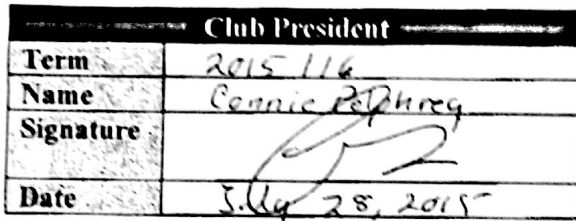 Club President
Term 2015/16
Name Connie
Signature
Date July 28, 2015